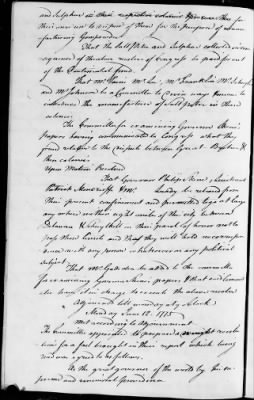 and Sulphur in their respective colonies &
their own use to dispose of them for the purpose of manu
facturing Gunpowder.
That the Salt Petre and Sulphur collected in con
sequence of the above resolves of Congress be paid for out
of the Continental fund.
That Mr Paine Mr Lee, Mr Franklin Mr Schuyler
and Mr Johnson be a Committee to devise ways & means to
introduce the manufacture of Salt petre in these
colonies.
The Committee for examining Governor
papers having communicated to Congress what they
found relative to the dispute between Great Britain &
these colonies
Upon Motion Resolved
That Governor Philip Skene, Lieutenant
Patrick Moncrieff & Mr Lundy be released from
their present confinement and permitted to go at large
any where within eight miles of the city between
Delaware & Schuylkill on their parole of honor not to
pass those limits and that they will hold no correspon
dence with any person whatsoever on any political
subject
That Mr be added to the committee
for examining Governor Skene's papers & that said commit
tee have it in charge to execute the above resolve
Adjourned till monday at 9 oClock
Monday June 12. 1775
Met according to Adjournment.
The Committee appointed to prepare a resolu
tion for a fast brought in their report which being
read was agreed to as follows.
As the great governor of the world by his su
preme and universal providence